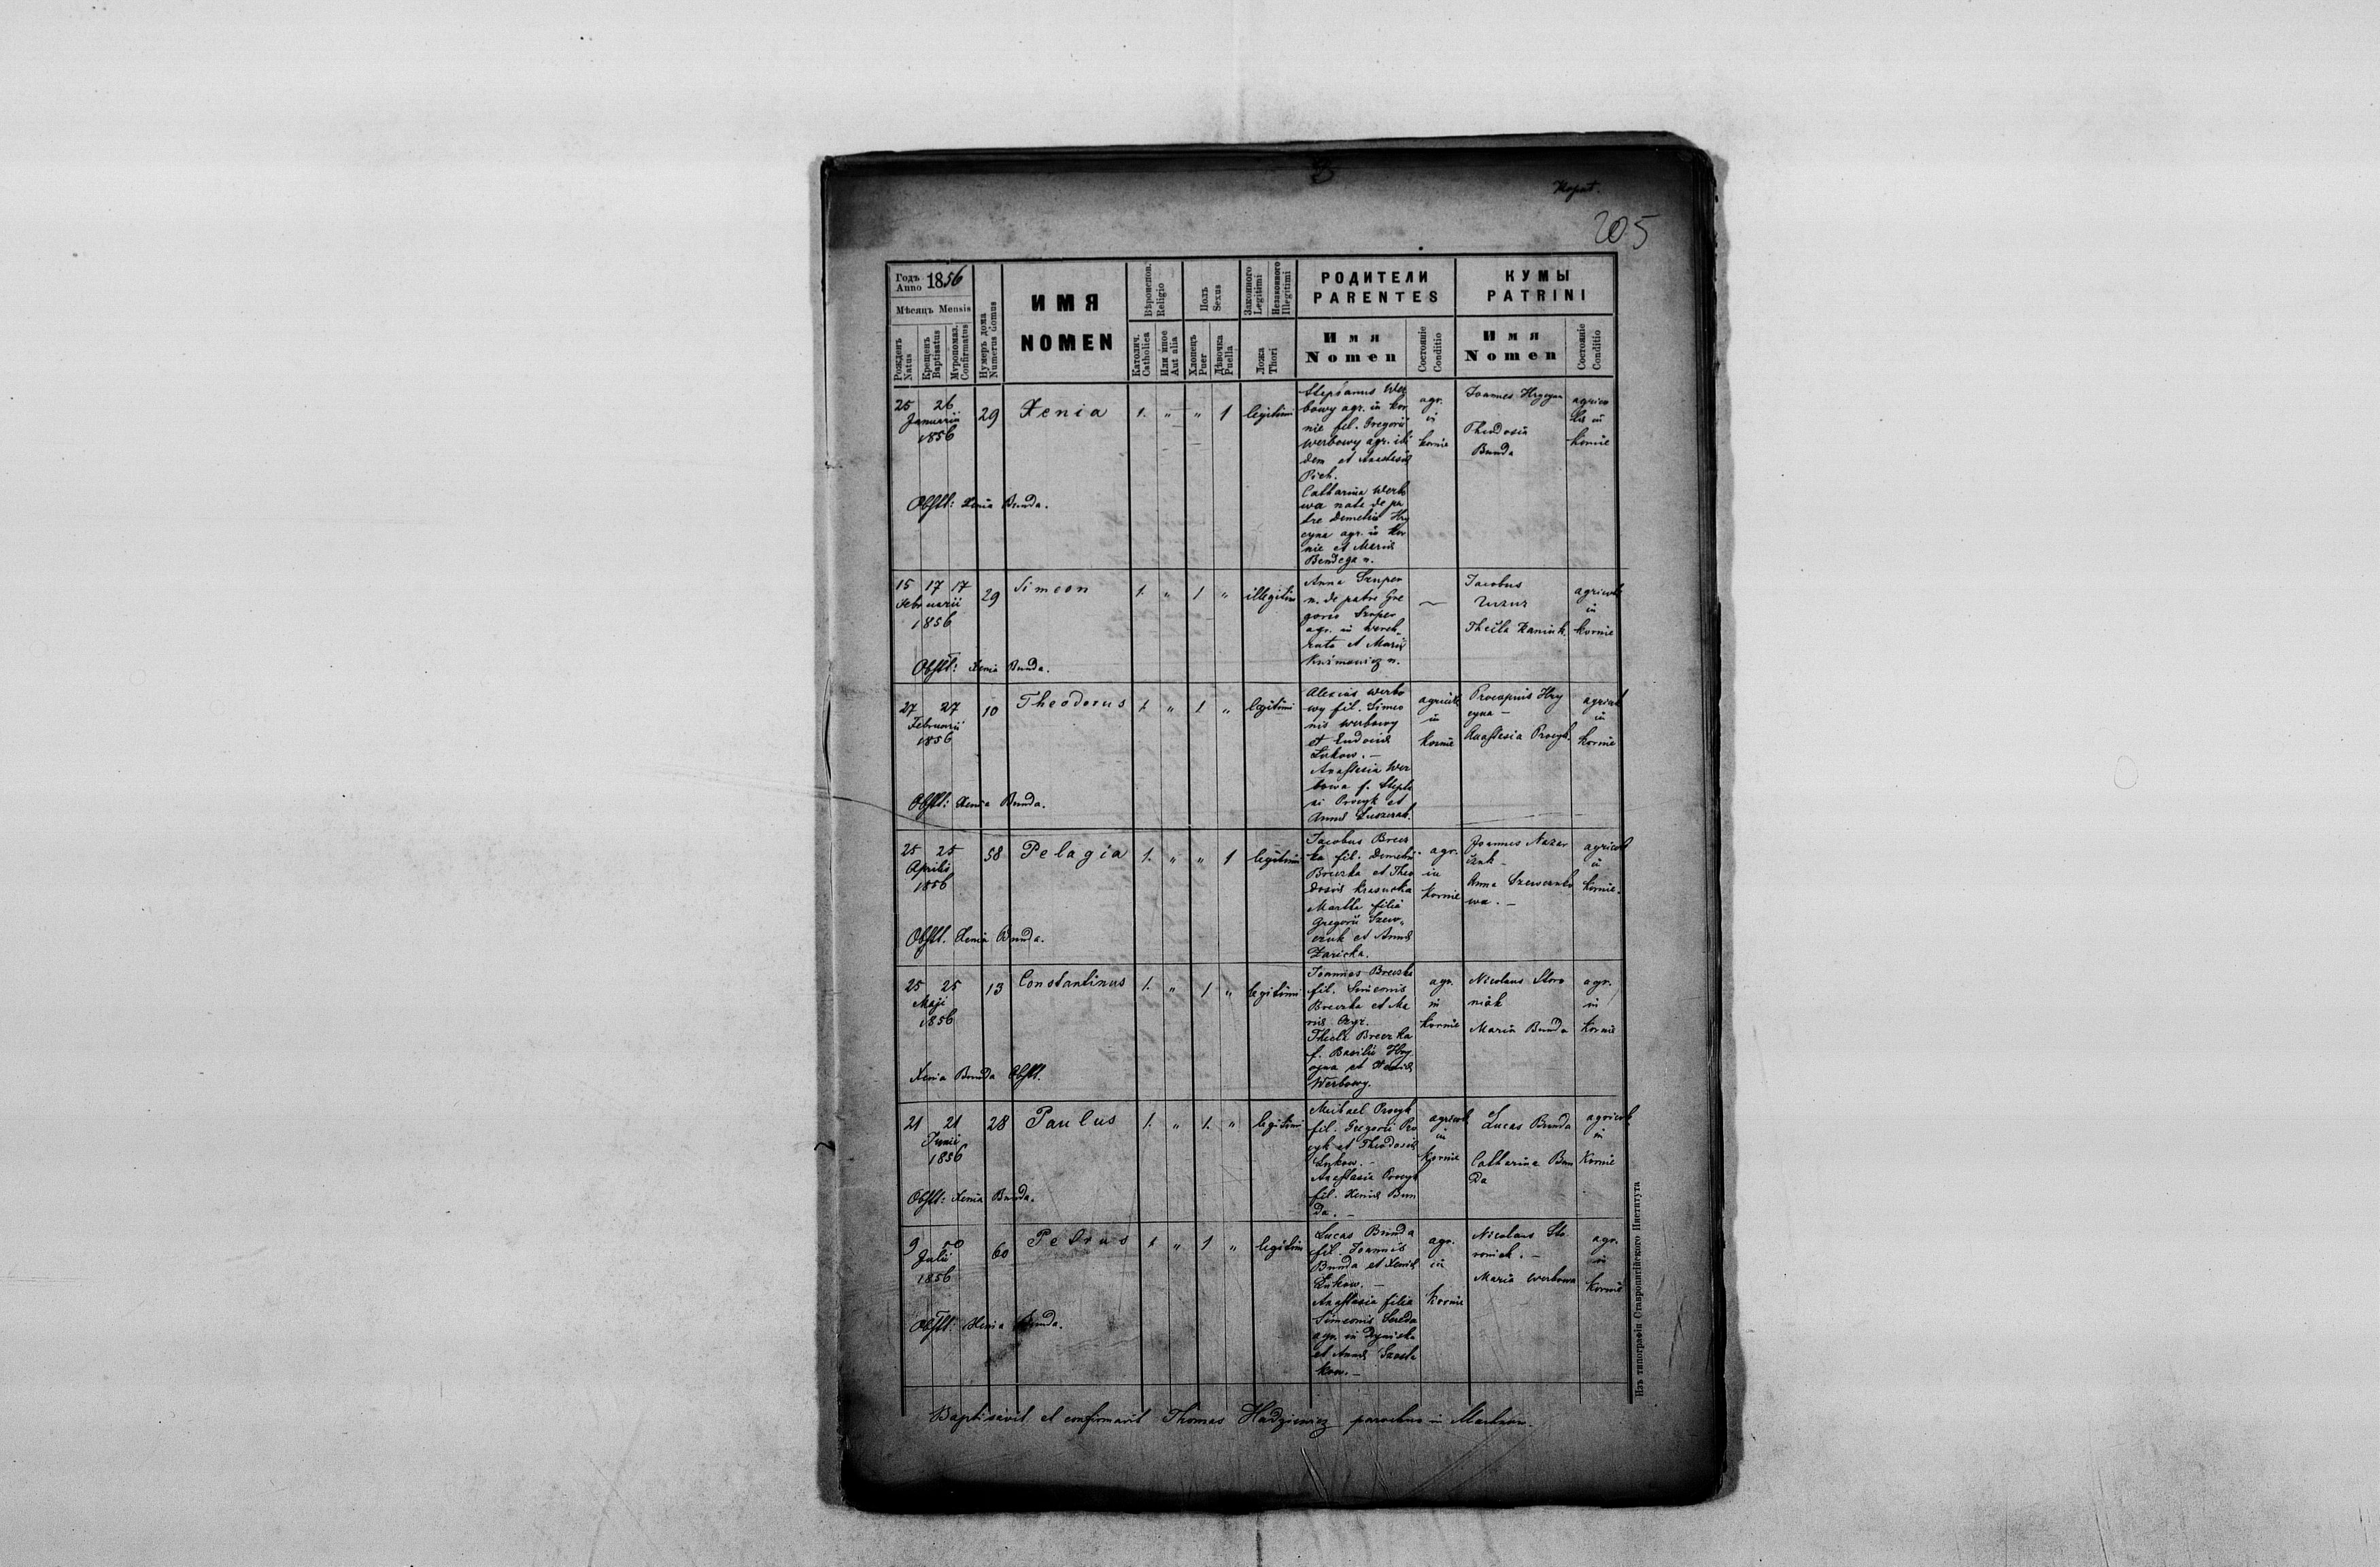 205
Годъ Anno 1856
Мѣсяцъ Mensis
Рожденъ Natus
Крещенъ Baptisatus
Мѵропомаз. Confirmatus
Нумеръ дома Numerus domus
ИМЯ
NOMEN
Вѣроиспов. Religio
Католич. Catholica
Или иное Aut alia
Полъ Sexus
Хлопецъ Puer
Дѣвочка Puella
Законного Legitimi
Незаконного Illegitimi
Ложа Thori
РОДИТЕЛИ
PARENTES
Имя
Nomen
Состояніе Conditio
КУМЫ
PATRINI
Имя
Nomen
Состояніе Conditio
25 26
Januarii
1856
29
Xenia
1. " " 1
legitimi
Stephanus Wer
bowy agr. in Kor
nie fil. Gregorii
Werbowy agr. ibi
dem et Anastasiæ
Catharina Werbo
wa nata de pa
tre Demetrio Hry
cyna agr. in Kor
nie et Maria
Bendega n.
agr.
in
Kornie
Joannes Hrycyna
Theodosia
Bunda
agrico
læ in
Kornie
Obstt: Xenia Bunda.
15 17 17
Februarii
1856
29
Simeon
1. " 1 "
illegitim
Anna Szuper
n. de patre Gre
gorio Szuper
agr. in Werch
rata et Maria
Kuśmowicz n.
—
Jacobus
Thecla Zaniuk
agricolæ
in
Kornie
Obstt: Xenia Bunda.
27 27
Februarii
1856
10
Theodorus
1. " 1 "
legitimi
Alexius Werbo
wy fil. Simeo
nis Werbowy
et Eudociæ
Łukow. —
Anastasia Wer
bowa f. Stepha
ni Procyk et
Annæ
agricolæ
in
Kornie
Procopius Hry
cyna —
Anastasia Procyk.
agricol
in
Kornie
Obstt: Xenia Bunda.
25 25
Aprilis
1856
58
Pelagia
1. " " 1
legitimi
Jacobus Brecz
ka fil. Demetri
Breczka et Theo
dosiæ Krasucka
Martha filia
Gregorii Szew-
czuk et Annæ
Zaricka.
agr.
in
Kornie
Joannes Nazar
Anna Szewczuko
wa. —
agricol
in
Kornie.
Obstt. Xenia Bunda.
25 25
Maji
1856
13
Constantinus
1. " 1 "
legitimi
Joannes Breczka
fil. Simeonis
Breczka et Ma
riæ
Thecla Breczka
f. Basilii Hry
cyna et
Werbowy.
agr.
in
Kornie
Nicolaus Storo
niak
Maria Bunda
agr.
in
Kornie
Xenia Bunda Obstt.
21 21
Junii
1856
28
Paulus
1. " 1. "
legitimi
Michael Procyk
fil. Gregorii Pro
cyk et Theodosiæ
Łukow. —
Anastasia Procyk
fil. Xeniæ Bun
da. —
agricol
in
Kornie
Lucas Bunda
Catharina Bun
da
agricol
in
Kornie
Obstt: Xenia Bunda.
9 10
Julii
1856
60
Petrus
1. " 1 "
legitim
Lucas Bunda
fil. Joannis
Bunda et Xeniæ
Łukow. —
Anastasia filia
Simeonis Sereda
agr. in Dyniska
et Annæ Szosta
kow. —
agr.
in
Kornie
Nicolaus Sto
roniak. —
Maria Werbowa
agr.
in
Kornie
Obstt: Xenia Bunda.
Baptisavit et confirmavit Thomas Hadziewicz parochus in
Изъ типографіи Ставропигійского Института